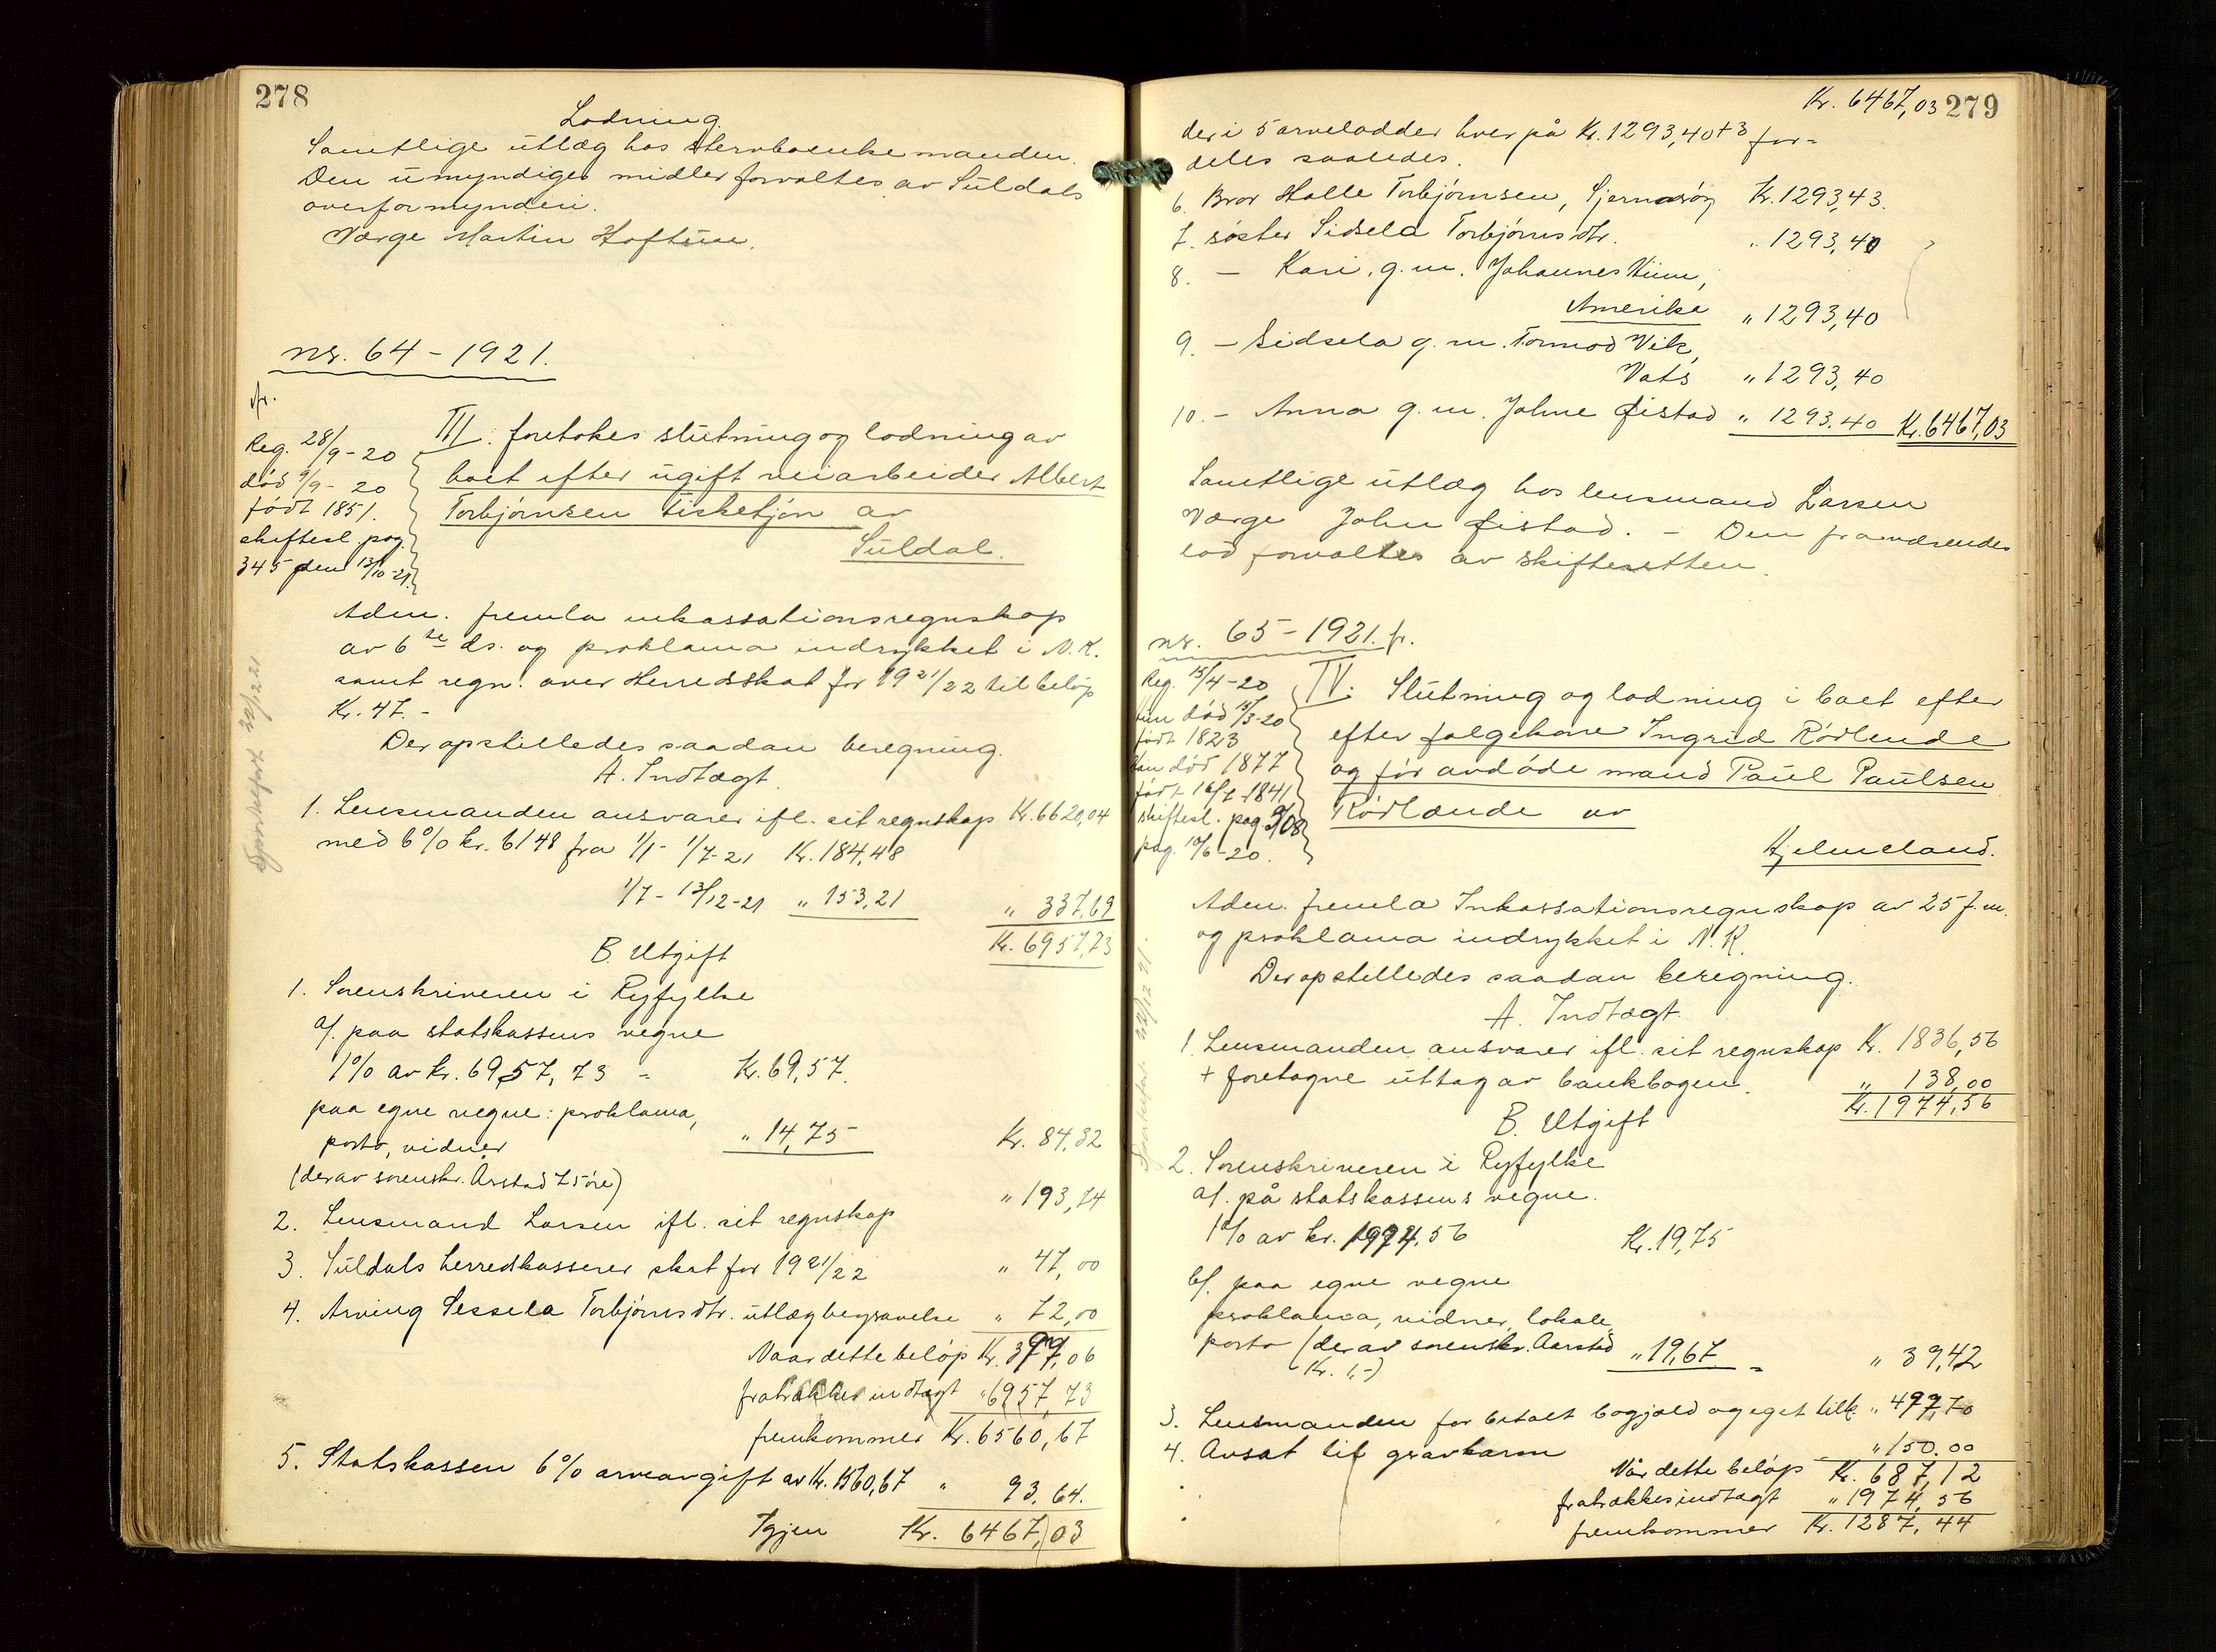 278
Lodning.
Samtlige utlæg hos stervboenkemanden.
Den umyndiges midler forvaltes av Suldals
overformynderi.
Værge Martin Hoftun.
nr. 64-1921.
fr.
Reg. 28/9-20
död 9/9-20
födt 1851.
skiftesl. pag.
345 den 13/10-21.
III. foretokes slutning og lodning av
boet efter ugift veiarbeider Albert
Torbjörnsen Fisketjön av
Suldal.
Adm. fremla inkassationsregnskap
av 6te ds. og proklama indrykket i N.K.
samt regn. over Herredskat for 1921/22 til beløp
Kr. 47.-
Der opstilledes saadan beregning.
A. Indtægt.
1. Lensmanden ansvarer ifl. sit regnskap Kr. 6620,04
med 6% kr. 6148 fra 1/1- 1/7-21 Kr. 184,48
1/7 - 13/12-21 " 153,21 " 337,69
Kr. 6957,73
B. Utgift
1. Sorenskriveren i Ryfylke
a/. paa statskassens vegne
1% av kr. 6957,73 = Kr. 69,57.
paa egne vegne: proklama,
porto, vidner " 14,75 Kr. 84,32
(derav sorenskr. Aarstad 75 öre)
2. Lensmand Larsen ifl. sit regnskap " 193,74
3. Suldals herredskasserer skat for 1921/22 " 47,00
4. Arving Sessela Torbjörnsdtr. utlæg begravelse " 72,00
Naar dette beløp Kr. 397,06
fratrækkes indtægt " 6957,73
fremkommer Kr. 6560,67
5. Statskassen 6% arveavgift av Kr. 1560,67 " 93,64.
Igjen Kr. 6467,03
Kr. 6467,03 279
der i 5 arvelodder hver på Kr. 1293,40 + 3 for-
deles saaledes.
6. Bror Halle Torbjörnsen, Sjernaröy Kr. 1293,43.
7. söster Sidsela Torbjörnsdtr. " 1293,40
8. - Kari, g.m. Johannes Hiim,
Amerika " 1293,40
9. - Sidsela g.m. Tormod Vik,
Vats " 1293,40
10. - Anna g.m. Johne Øistad " 1293.40 Kr. 6467,03
Samtlige utlæg hos lensmand Larsen
Værge John Øistad. - Den fraværendes
lod forvaltes av skifteretten.
nr. 65-1921. fr.
Reg. 15/4-20
hun död 15/3-20
födt 1823
han död 1877
födt 16/7-1841
skiftesl. pag. 9/08
pag. 10/6-20.
IV. Slutning og lodning i boet efter
efter folgekone Ingrid Rödlende
og för avdöde mand Paul Paulsen
Rödlænde av
Hjelmeland.
Adm. fremla Inkassationsregnskap av 25 f.m.
og proklama indrykket i N.K.
Der opstilledes saadan beregning.
A. Indtægt.
1. Lensmanden ansvarer ifl. sit regnskap Kr. 1836,56
+ foretagne uttag av bankbogen. " 138,00
Kr. 1974,56
B. Utgift
2. Sorenskriveren i Ryfylke
a/. på statskassens vegne.
1% av kr. 1974,56 Kr. 19,75
b/. paa egne vegne
proklama, vidner, lokale,
porto (derav sorenskr. Aarstad " 19,67 = " 39,42
Kr. 1,-)
3. Lensmanden for betalt bogjæld og eget tilk. " 497,70
4. Avsat til gravkarm " 150.00
Når dette beløp Kr. 687,12
fratrækkes indtægt " 1974,56
fremkommer Kr. 1287,44